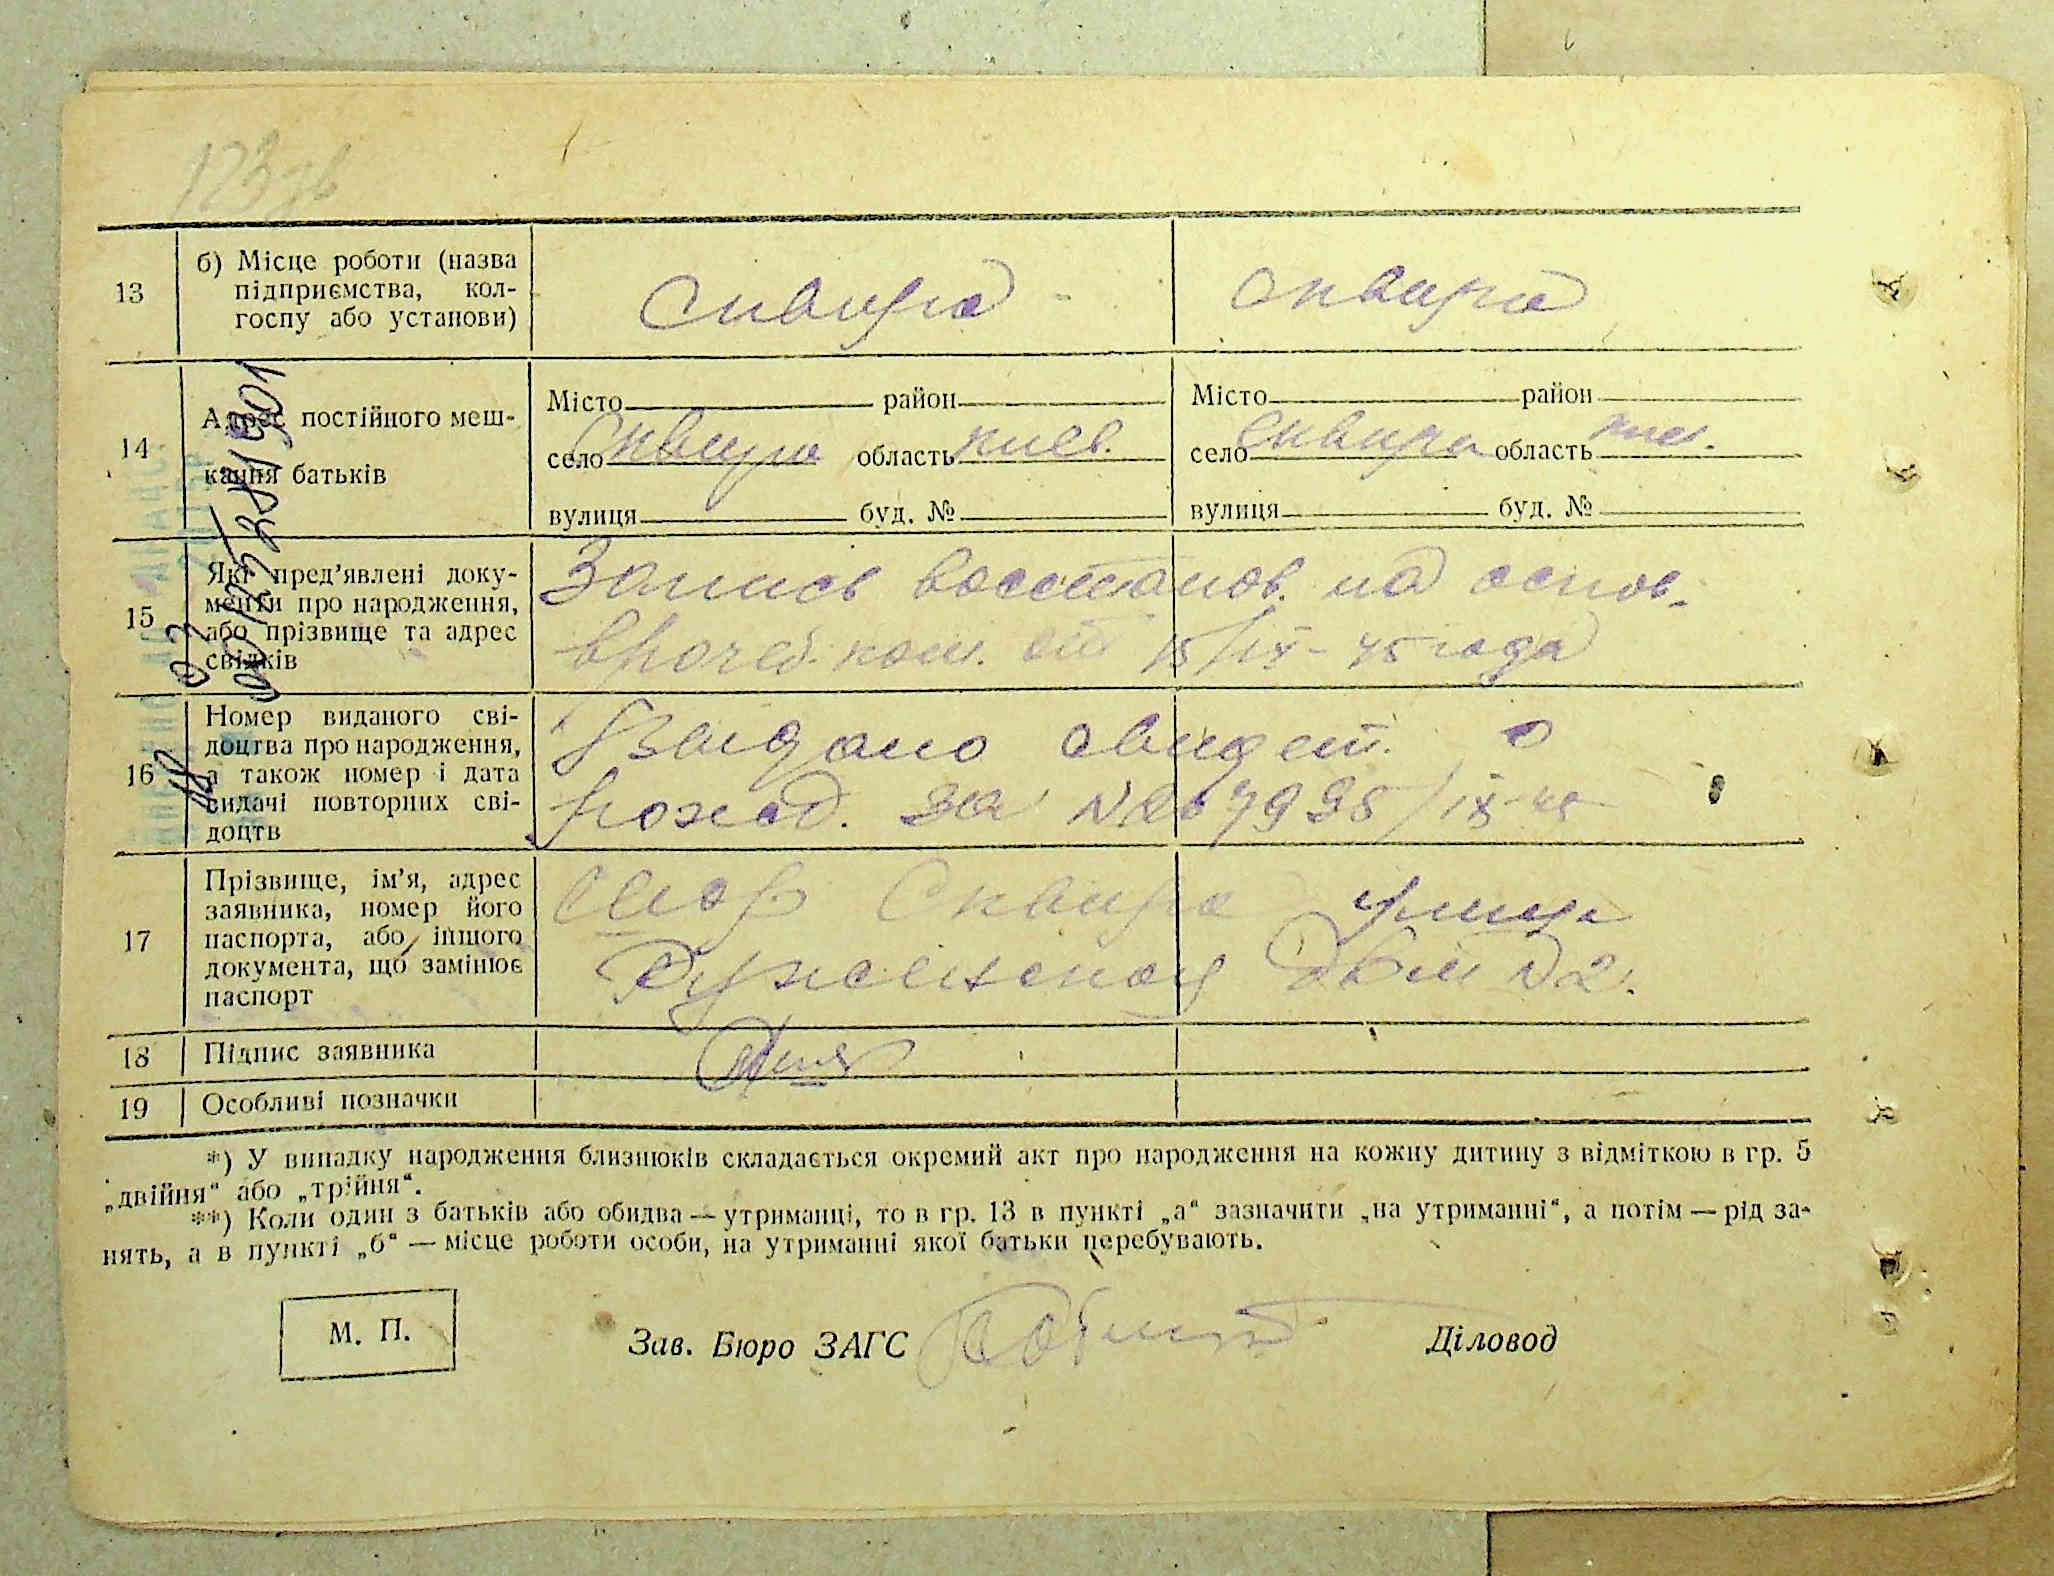 123зв
13 б) Місце роботи (назва
підприємства, кол-
госпу або установи)
Сквира Сквира
14 Адрес постійного меш-
кання батьків
Місто район Місто район
село Сквира область киев. село Сквира область киев.
вулиця буд. № вулиця буд. №
15 Які пред’явлені доку-
менти про народження,
або прізвище та адрес
свідків
Запись восстанов. на основ.
врачеб. ком. от 15/IX-45 года
16 Номер виданого сві-
доцтва про народження,
а також номер і дата
видачі повторних сві-
доцтв
Выдано свидет. о
рожд. за №
17 Прізвище, ім’я, адрес
заявника, номер його
паспорта, або іншого
документа, що замінює
паспорт
Сквира улица
дом №2.
18 Підпис заявника
19 Особливі позначки
*) У випадку народження близнюків складається окремий акт про народження на кожну дитину з відміткою в гр. 5
„двійня“ або „трійня“.
**) Коли один з батьків або обидва — утриманці, то в гр. 13 в пункті „а“ зазначити „на утриманні“, а потім — рід за-
нять, а в пункті „б“ — місце роботи особи, на утриманні якої батьки перебувають.
М. П.
Зав. Бюро ЗАГС Діловод